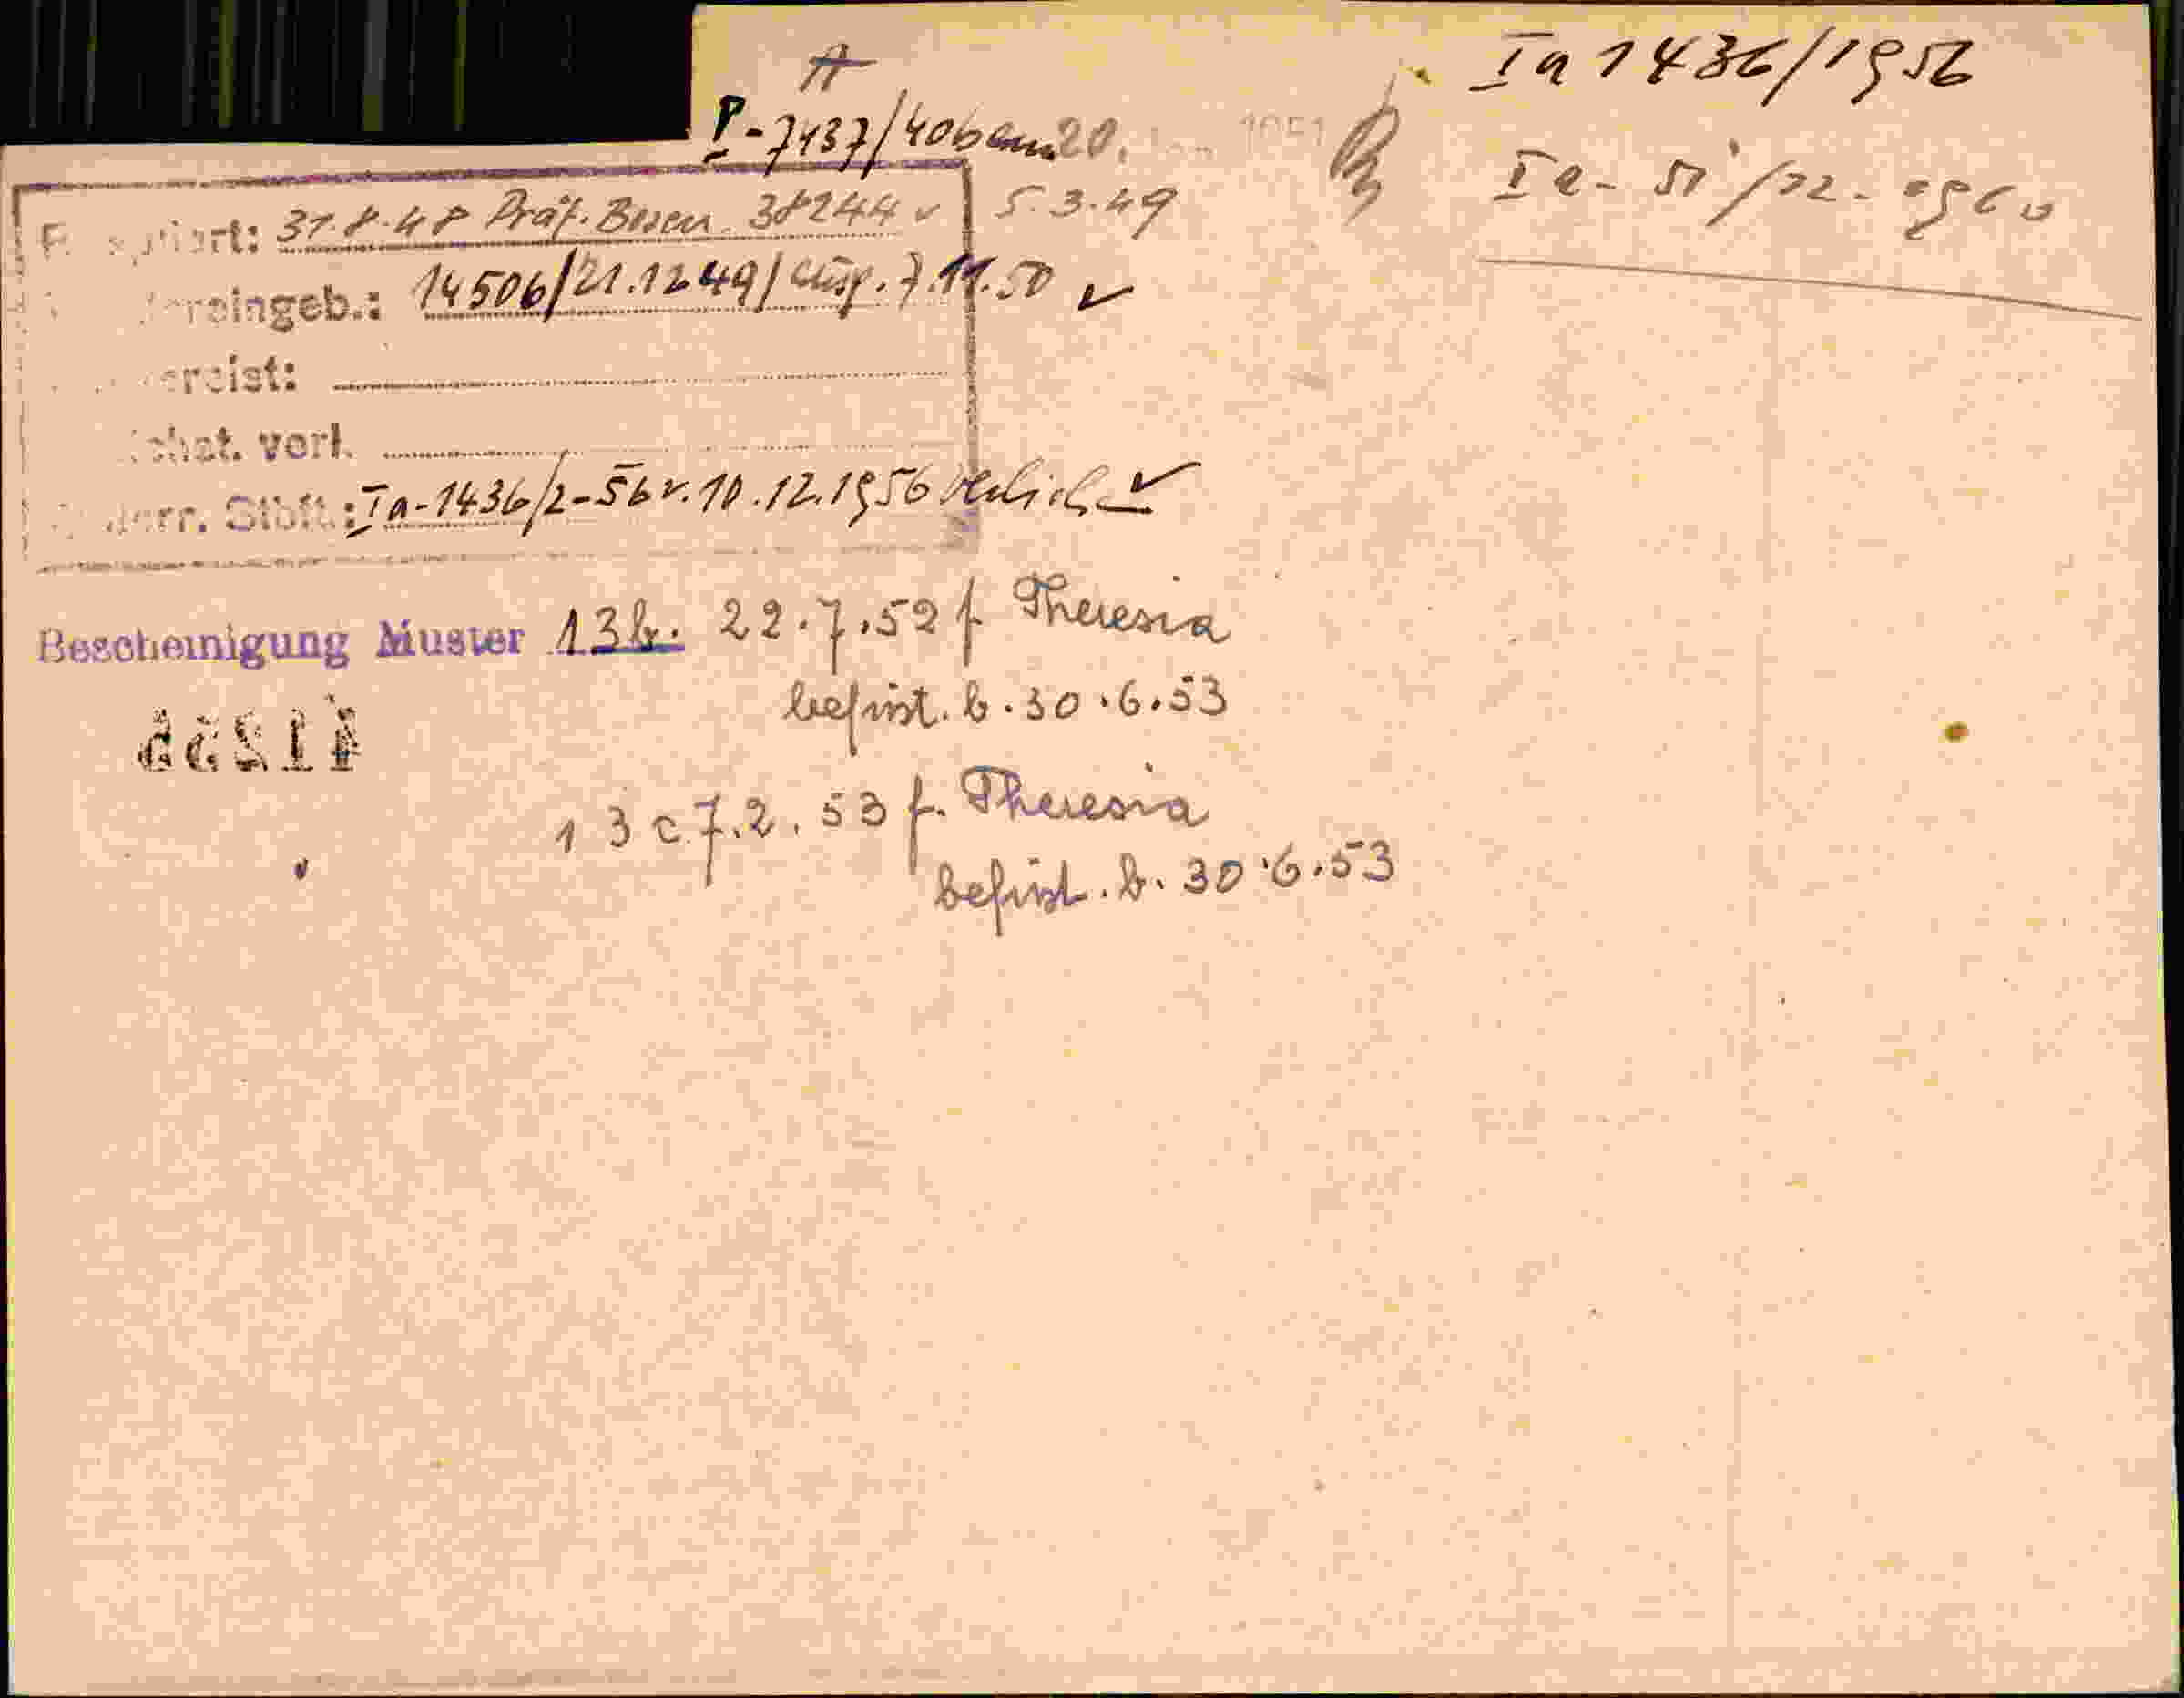 A
Ia 1436/1956
P-7137/40 20. 1951
Ia- 51/22-1960
rt: 31.8.48 Präf. Bozen. 38244 v 5.3.49
reingeb.: 14506/21.12.49/ 7.11.50 ✓
reist:
chat. verl.
err. Stbft.: Ia-1436/2-56 v. 10.12.1956 verlieh. ✓
Bescheinigung Muster 13b. 22.7.52 f Theresia
befrist. b. 30.6.53
41255
13c 7.2.53 f. Theresia
befrist. b. 30.6.53